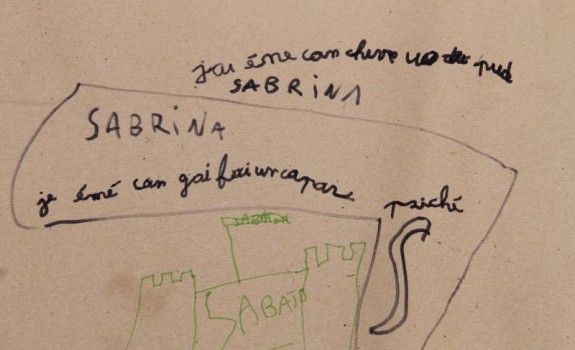 j'ai éme can cheve
SABRINA
SABRINA
je émé can gai fai un capar
psiché
SABATO